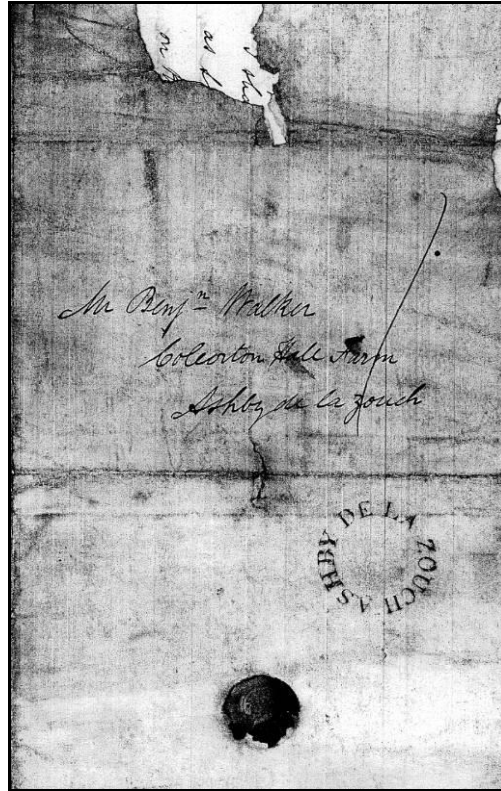 Mr Benjn Walker
Coleorton Hall Farm
Ashby de la Zouch
ASHBY DE LA ZOUCH